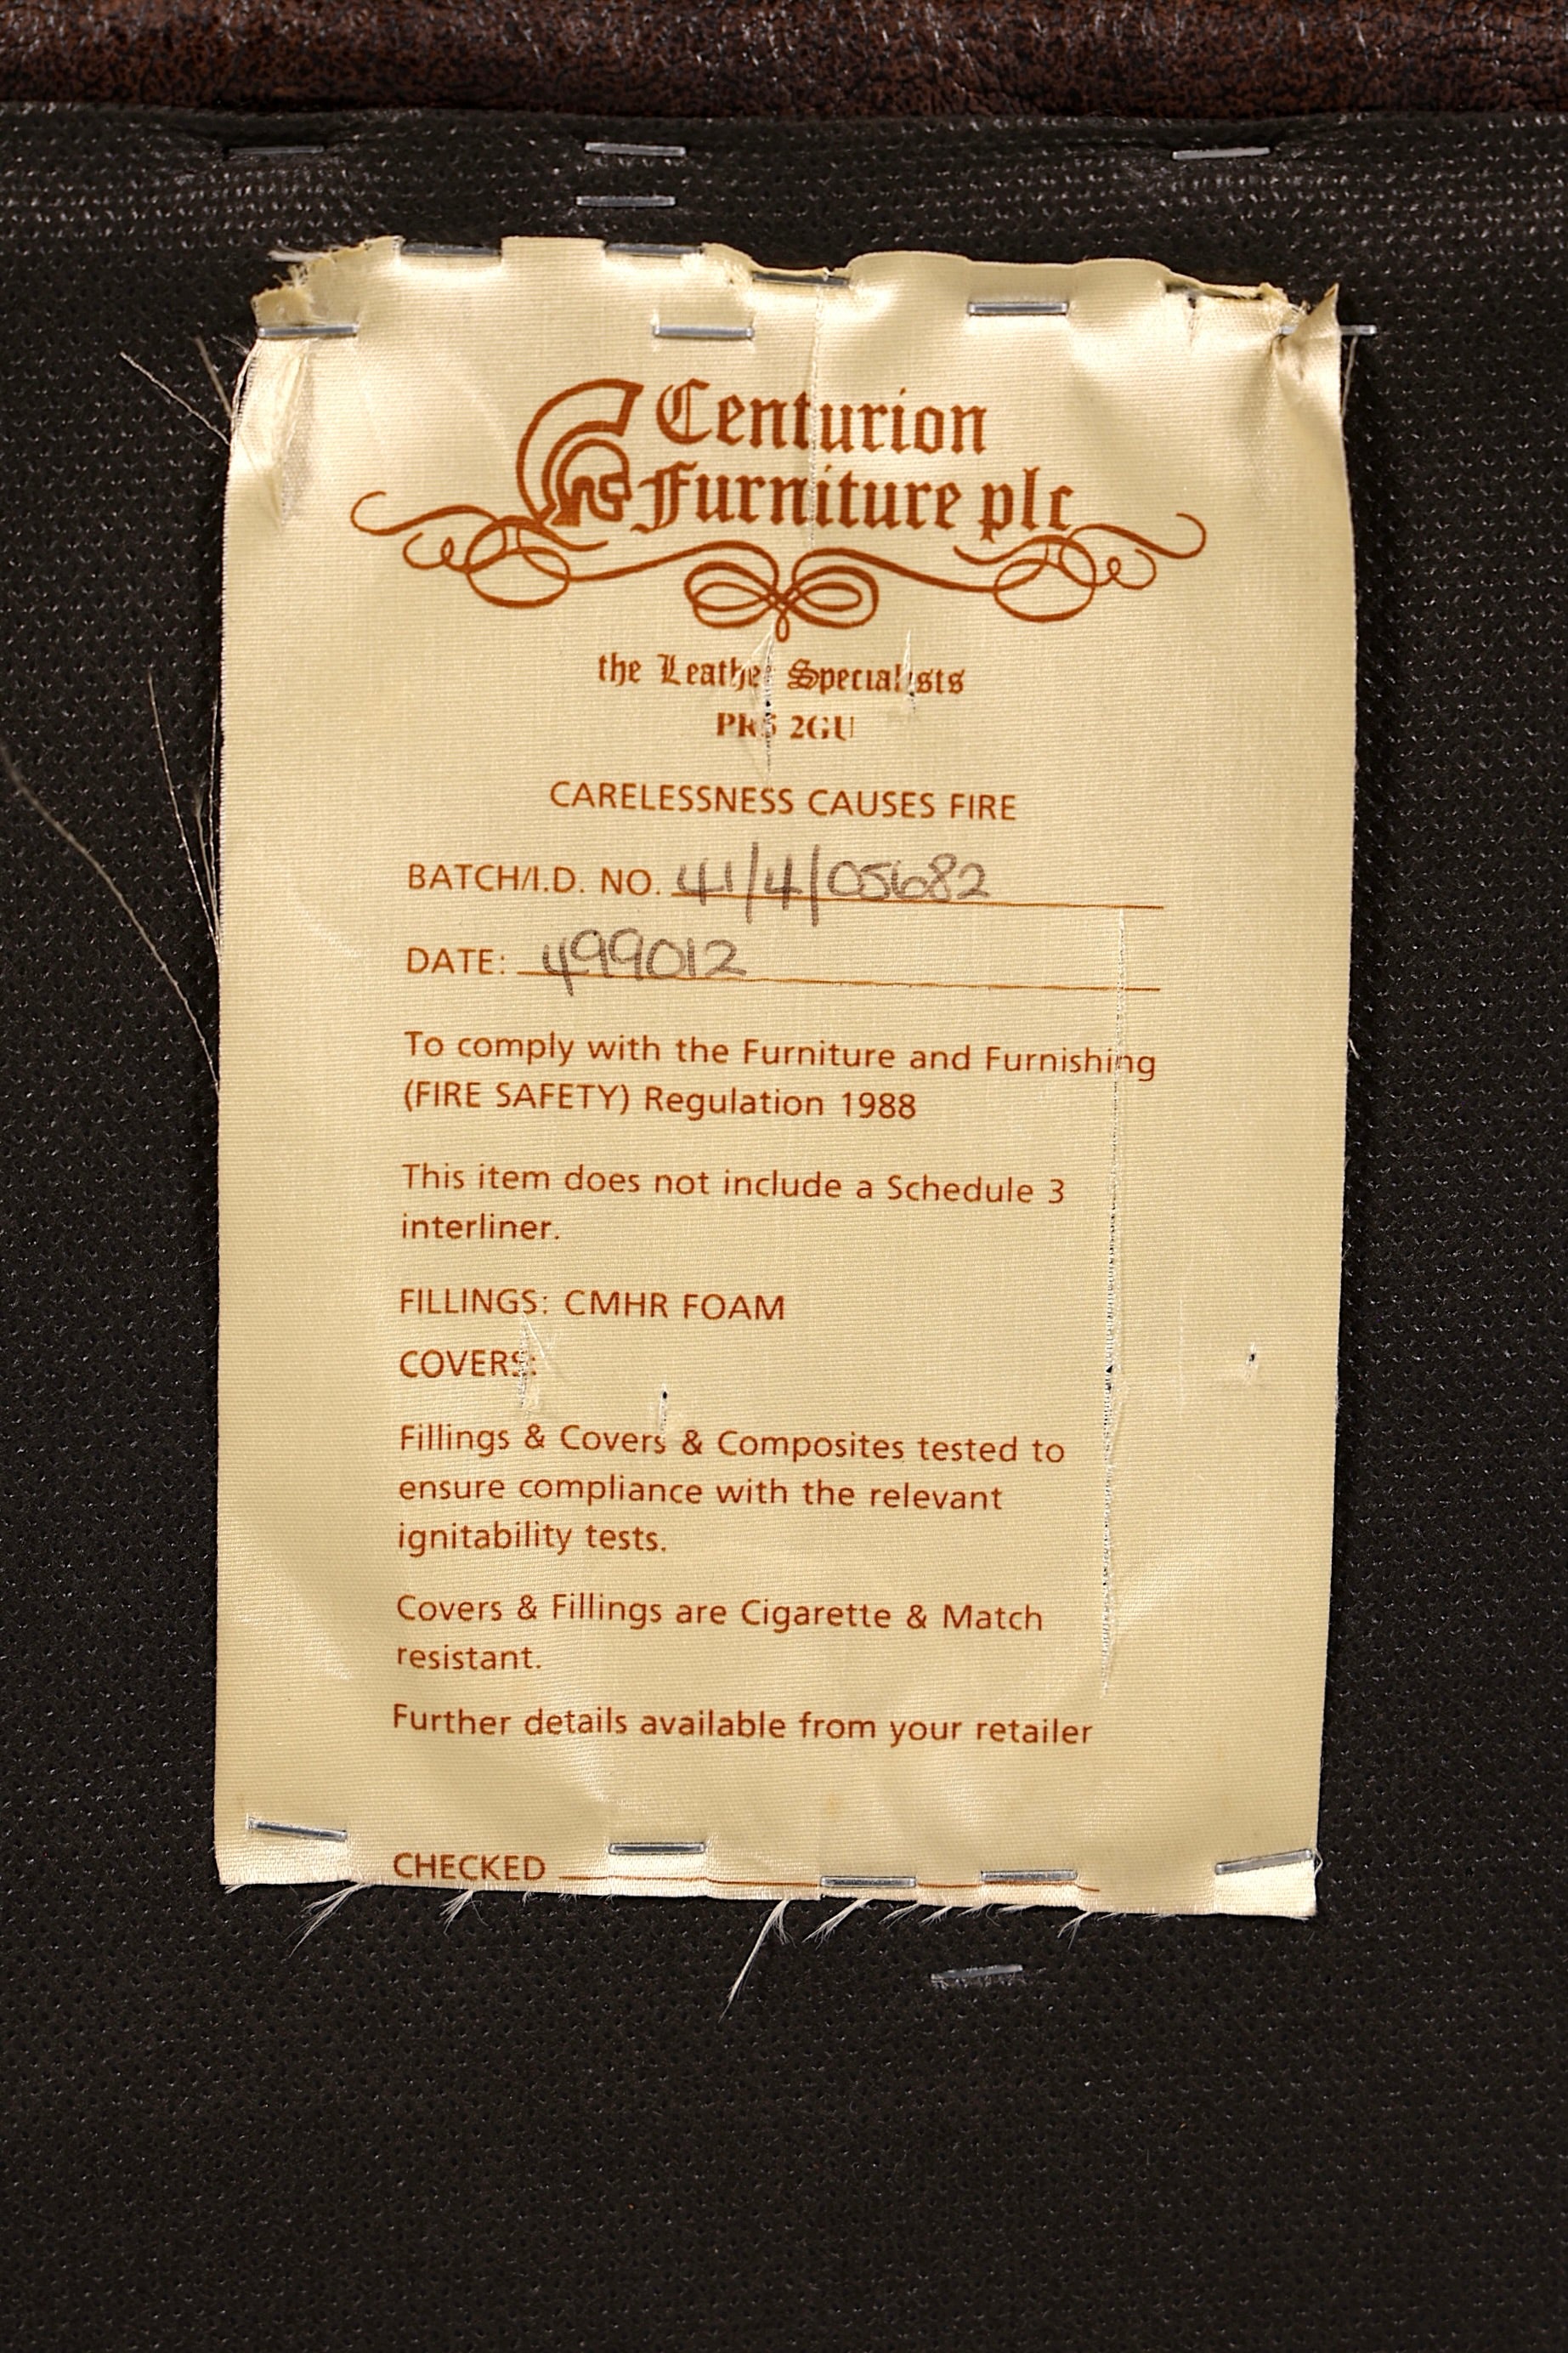 Centurion
Furniture plc
the Leather Specialists
PR5 2GU
CARELESSNESS CAUSES FIRE
BATCH/I.D. NO. 41/4/05682
DATE: 499012
To comply with the Furniture and Furnishing
(FIRE SAFETY) Regulation 1988
This item does not include a Schedule 3
interliner.
FILLINGS: CMHR FOAM
COVERS:
Fillings & Covers & Composites tested to
ensure compliance with the relevant
ignitability tests.
Covers & Fillings are Cigarette & Match
resistant.
Further details available from your retailer
CHECKED